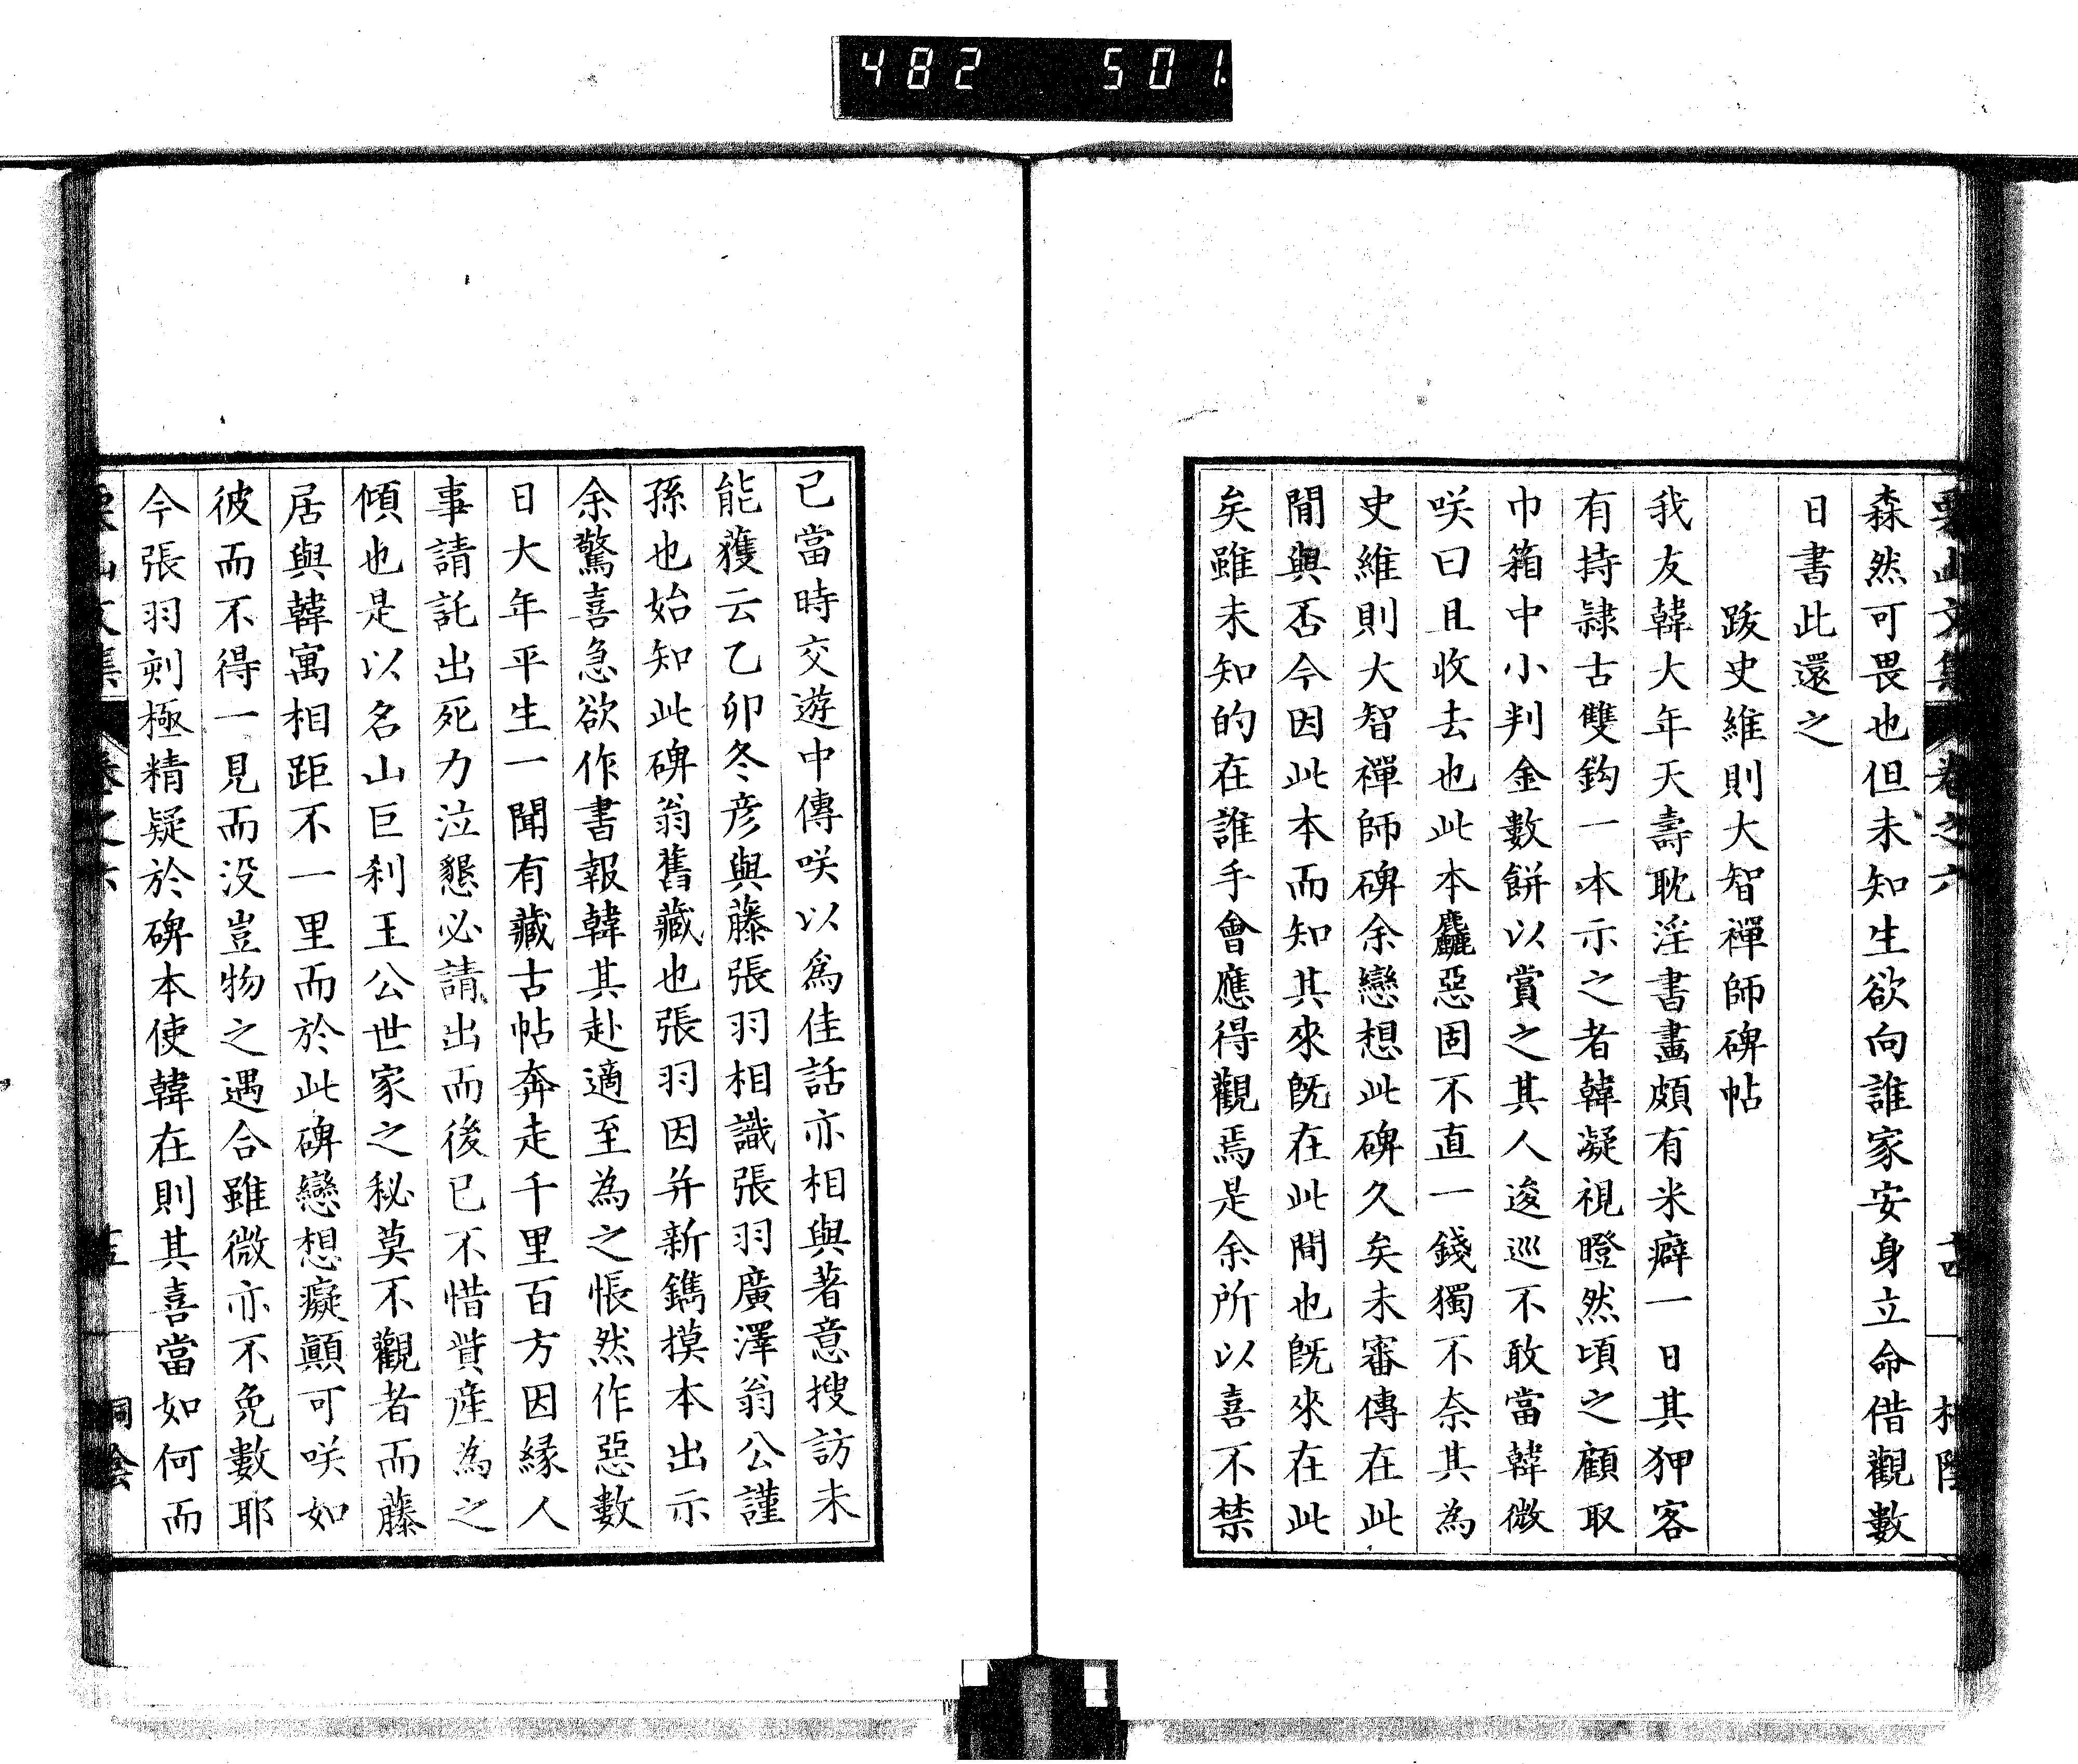 482 501
栗山文集 卷之六 十四
森然可畏也但未知生欲向誰家安身立命借觀數
日書此還之
跋史維則大智禪師碑帖
我友韓大年天壽耽淫書畫頗有米癖一日其狎客
有持隷古雙鈎一本示之者韓凝視瞪然頃之顧取
巾箱中小判金數餅以賞之其人逡巡不敢當韓微
咲曰且收去也此本麤惡固不直一錢獨不奈其為
史維則大智禪師碑余戀想此碑久矣未審傳在此
間與否今因此本而知其來既在此間也既來在此
矣雖未知的在誰手會應得觀焉是余所以喜不禁
已當時交遊中傳咲以爲佳話亦相與著意搜訪未
能獲云乙卯冬彦與藤張羽相識張羽廣澤翁公謹
孫也始知此碑翁舊藏也張羽因并新鐫摸本出示
余驚喜急欲作書報韓其赴適至為之悵然作惡數
日大年平生一聞有藏古帖奔走千里百方因縁人
事請託出死力泣懇必請出而後已不惜貲産為之
傾也是以名山巨刹王公世家之秘莫不觀者而藤
居與韓寓相距不一里而於此碑戀想癡顚可咲如
彼而不得一見而没豈物之遇合雖微亦不免數耶
今張羽刻極精疑於碑本使韓在則其喜當如何而
文集 卷之六 桐陰